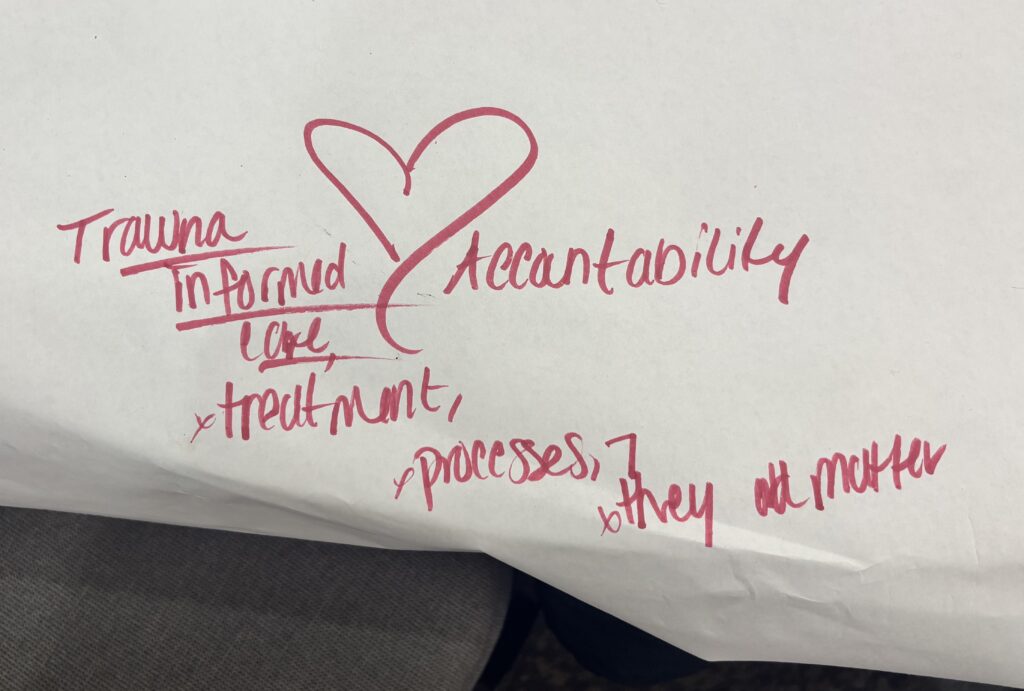 Trauma
informed
care,
Accantability
x treatment,
x processes, 7
x they all matter